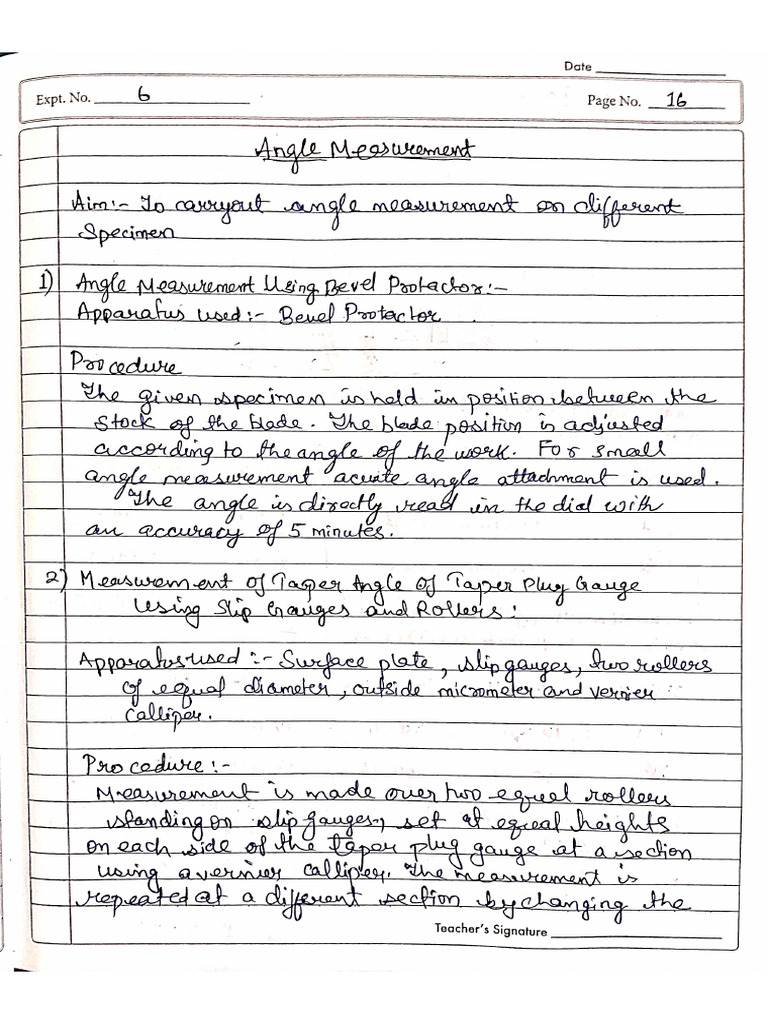 Date
Expt. No. 6
Page No. 16
Angle Measurement
Aim:- To carryout angle measurement on different
Specimen
1) Angle Measurement Using Bevel Protactor:-
Apparatus used:- Bevel Protactor
Procedure
The given specimen is held in position between the
stock of the blade. The blade position is adjusted
according to the angle of the work. For small
angle measurement acuate angle attachment is used.
The angle is directly read in the dial with
an accuracy of 5 minutes.
2) Measurement of Taper Angle of Taper Plug Gauge
Using Slip Gauges and Rollers:
Apparatus used :- Surface plate, slip gauges, two rollers
of equal diameter, outside micrometer and vernier
calliper.
Procedure:-
Measurement is made over two equal rollers
standing on slip gauges, set at equal heights
on each side of the taper plug gauge at a section
using a vernier calliper. The measurement is
repeated at a different section by changing the
Teacher's Signature